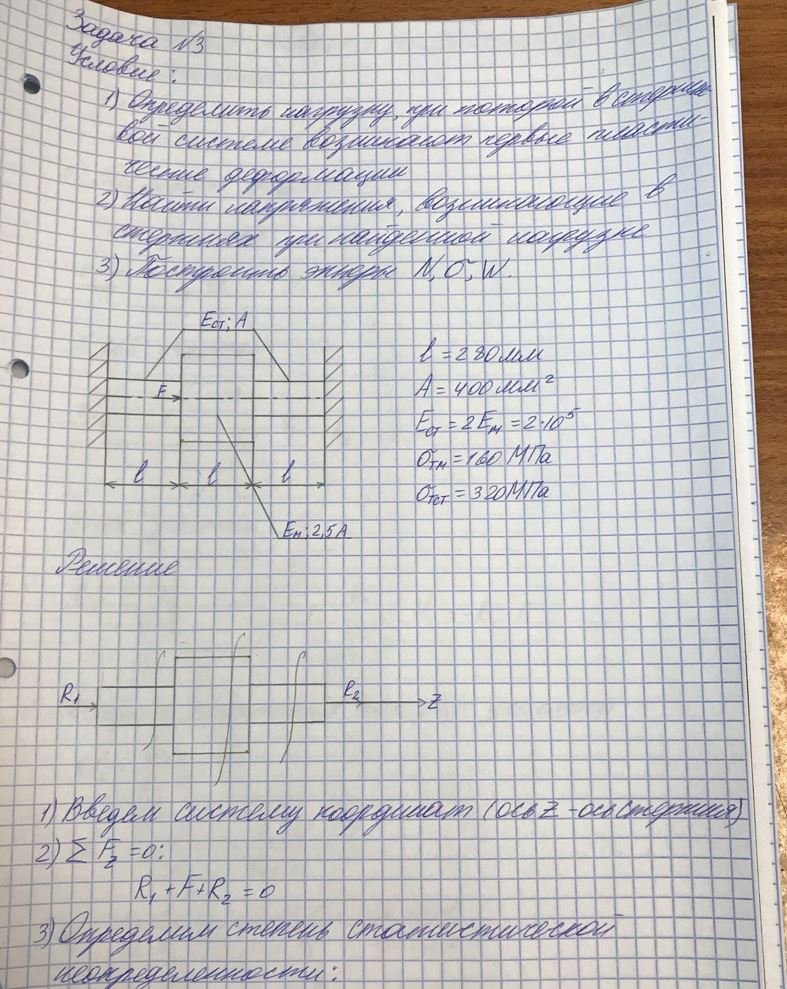 Задача №3
Условие:
1) Определить нагрузку, при которой в стержне-
вой системе возникают первые пласти-
ческие деформации
2) Найти напряжения, возникающие в
стержнях при найденной нагрузке
3) Построить эпюры N, σ, W.
Eст; A
F
l
l
l
Eм; 2,5A
l = 280 мм
A = 400 мм²
Eст = 2Eм = 2·10⁵
σтм = 160 МПа
σтст = 320 МПа
Решение
R₁
R₂
Z
1) Введем систему координат (ось Z - ось стержня)
2) Σ Fz = 0:
R₁ + F + R₂ = 0
3) Определим степень статистической
неопределенности: